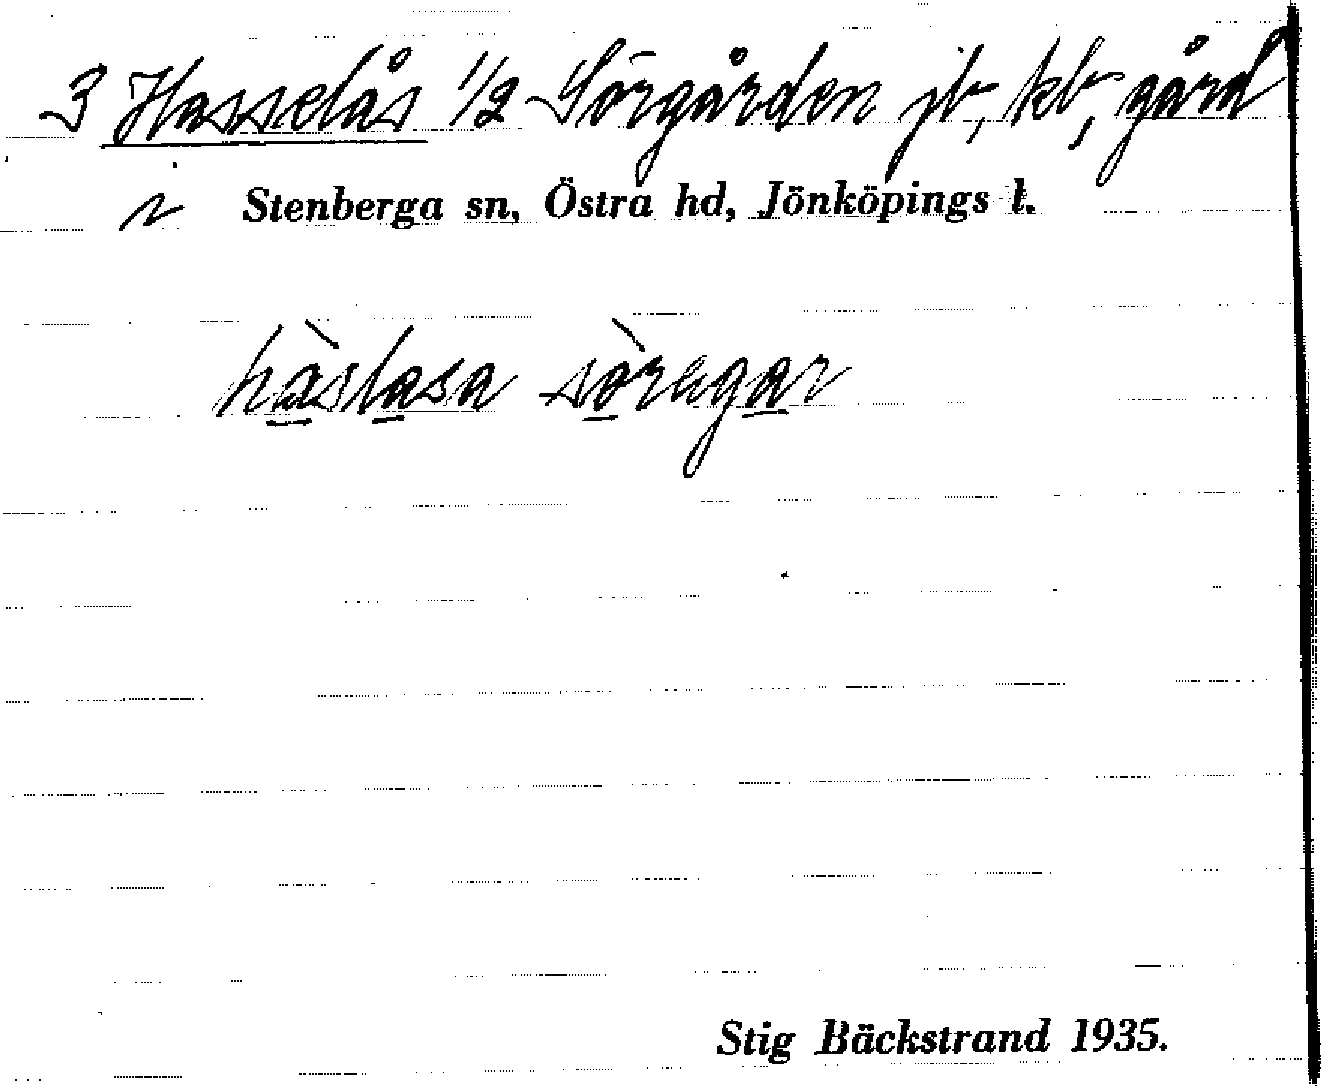 3 Hasselås 1/2 Sörgården jb, kb, gård
Stenberga sn, Östra hd, Jönköpings l.
hàslasa sòregar
Stig Bäckstrand 1935.